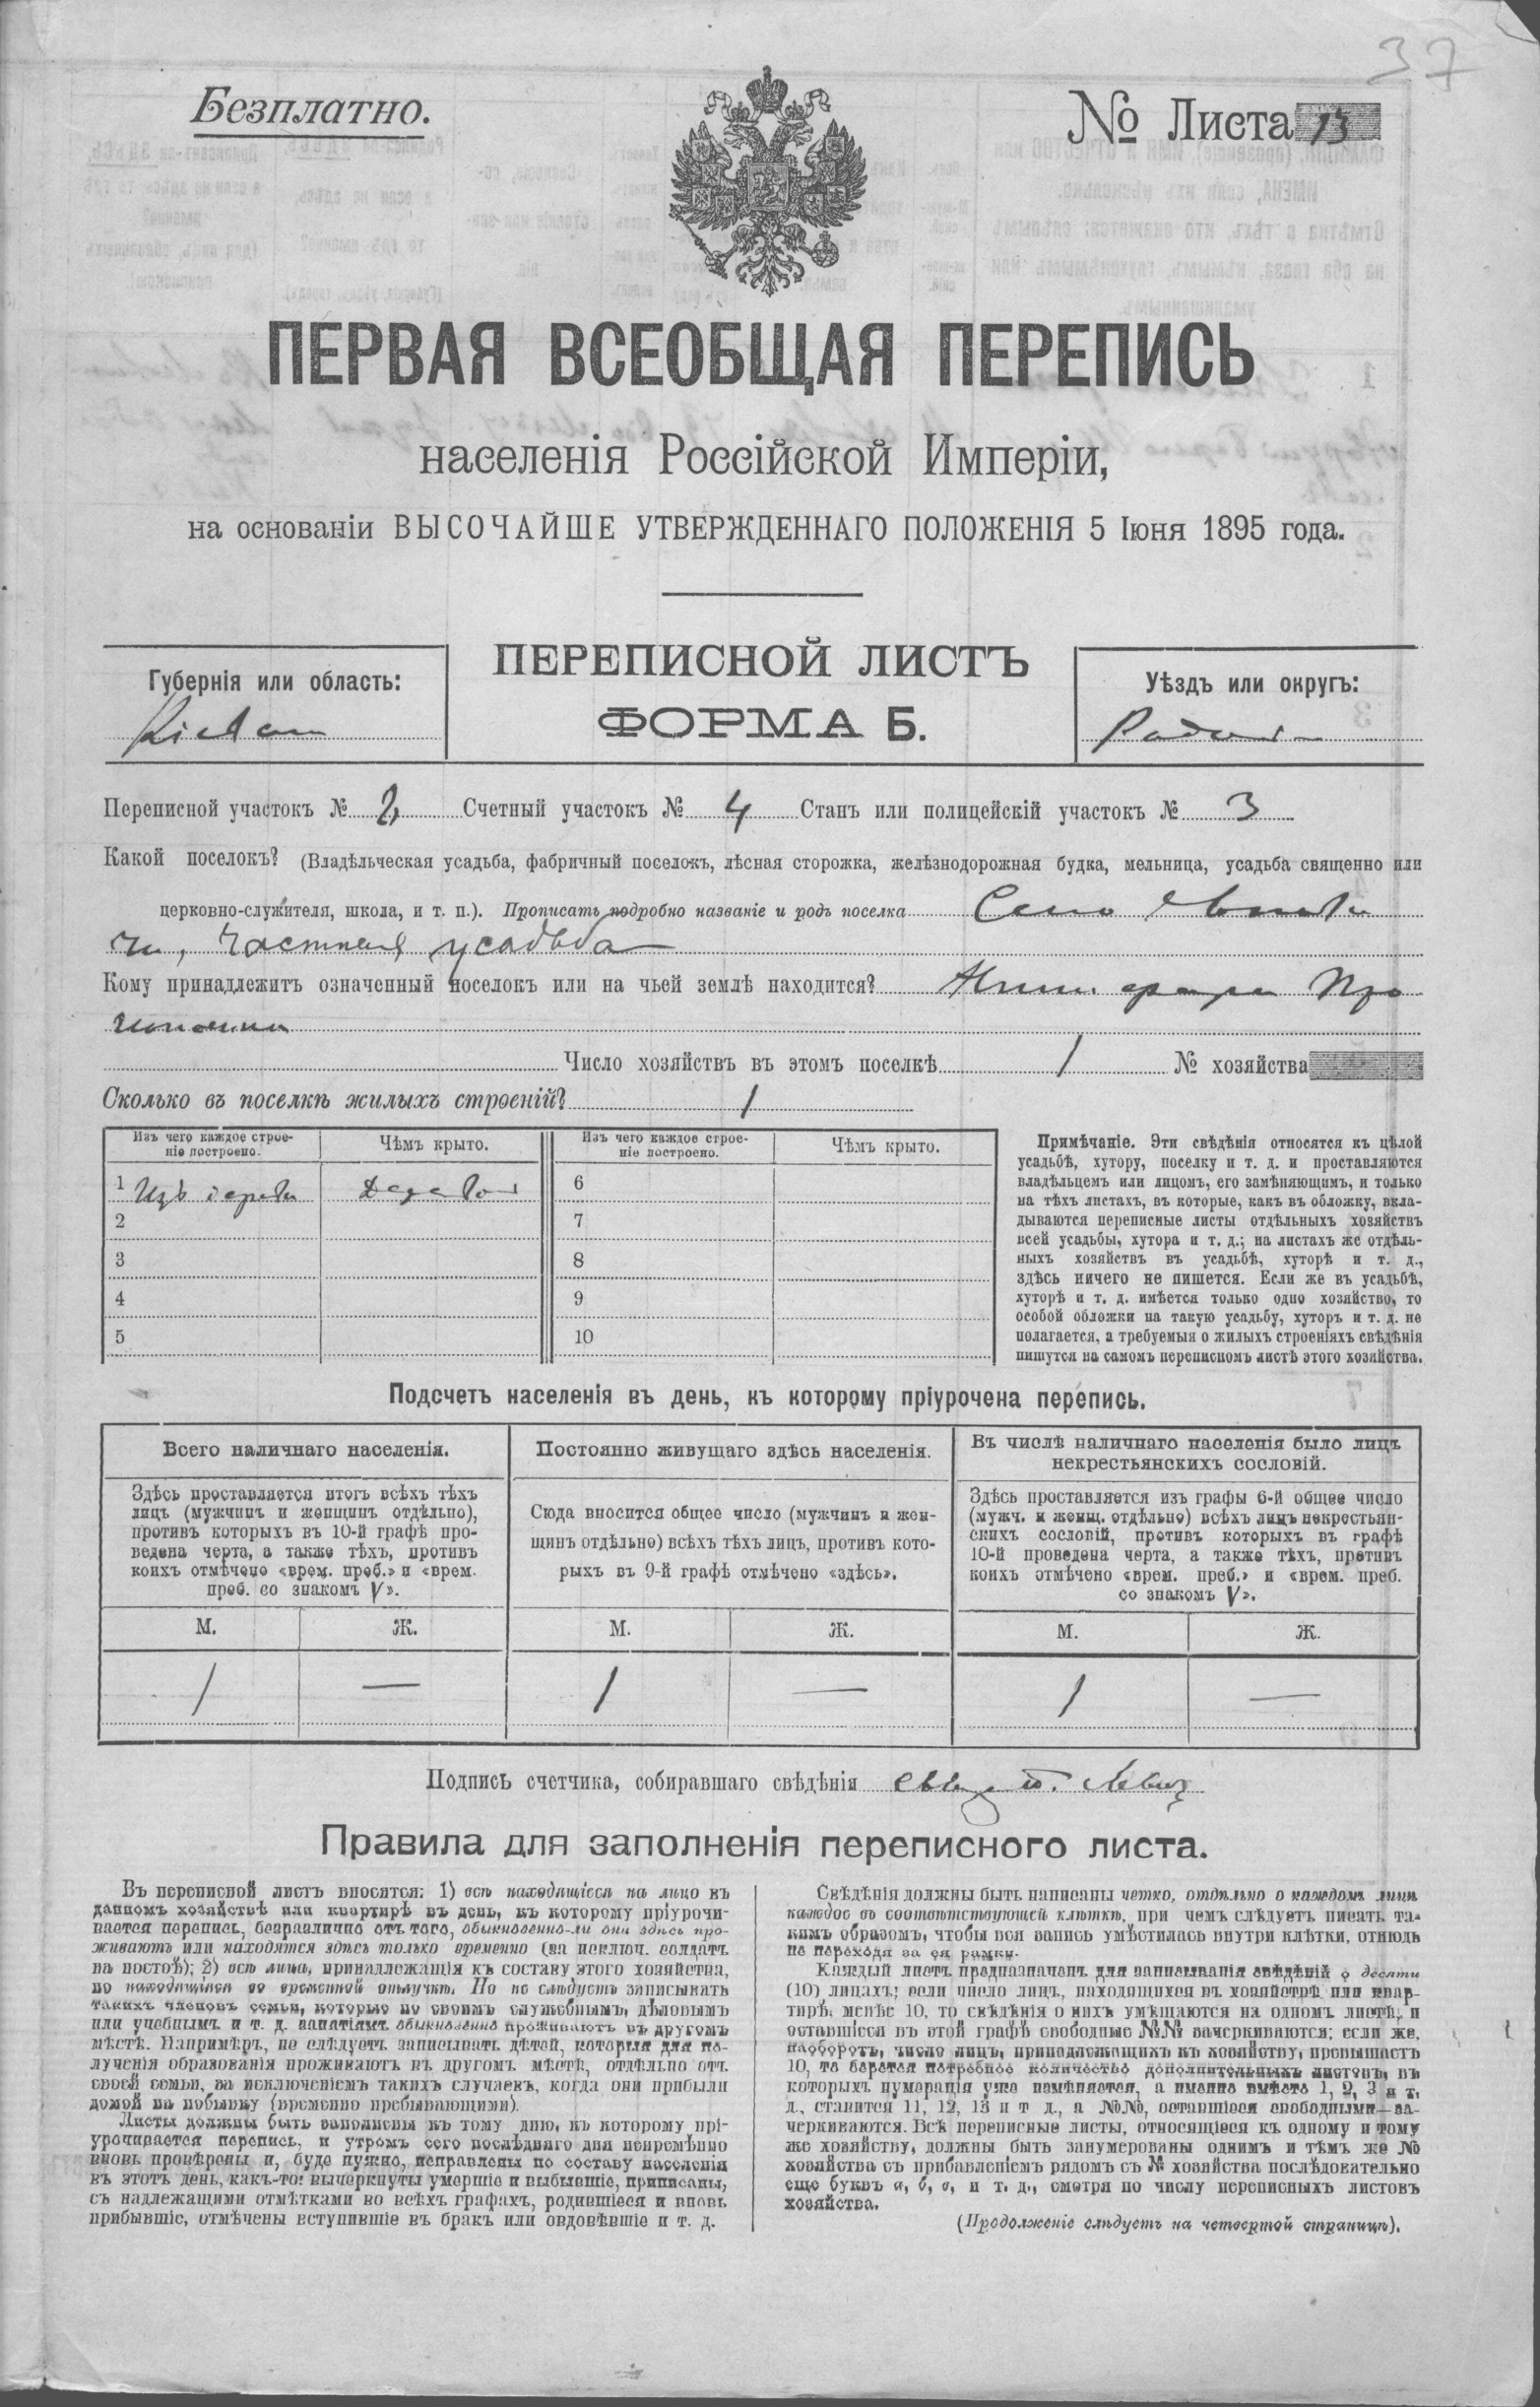 37
Безплатно.
№ Листа 13
ПЕРВАЯ ВСЕОБЩАЯ ПЕРЕПИСЬ
населенія Россійской Имперіи,
на основаніи ВЫСОЧАЙШЕ УТВЕРЖДЕННАГО ПОЛОЖЕНІЯ 5 Іюня 1895 года.
ПЕРЕПИСНОЙ ЛИСТЪ
ФОРМА Б.
Губернія или область:
Уѣздъ или округъ:
Переписной участокъ № 2 Счетный участокъ № 4 Станъ или полицейскій участокъ № 3
Какой поселокъ? (Владѣльческая усадьба, фабричный поселокъ, лѣсная сторожка, желѣзнодорожная будка, мельница, усадьба священно или
церковно-служителя, школа, и т. п.). Прописать подробно названіе и родъ поселка Село
чи, частная усадьба
Кому принадлежитъ означенный поселокъ или на чьей землѣ находится?
Число хозяйствъ въ этомъ поселкѣ 1 № хозяйства
Сколько въ поселкѣ жилыхъ строеній? 1
Изъ чего каждое строе-
ніе построено.
Чѣмъ крыто.
Изъ чего каждое строе-
ніе построено.
Чѣмъ крыто.
1 Изъ дерева
6
2
7
3
8
4
9
5
10
Примѣчаніе. Эти свѣдѣнія относятся къ цѣлой
усадьбѣ, хутору, поселку и т. д. и проставляются
владѣльцемъ или лицомъ, его замѣняющимъ, и только
на тѣхъ листахъ, въ которые, какъ въ обложку, вкла-
дываются переписные листы отдѣльныхъ хозяйствъ
всей усадьбы, хутора и т. д.; на листахъ же отдѣль-
ныхъ хозяйствъ въ усадьбѣ, хуторѣ и т. д.,
здѣсь ничего не пишется. Если же въ усадьбѣ,
хуторѣ и т. д. имѣется только одно хозяйство, то
особой обложки на такую усадьбу, хуторъ и т. д. не
полагается, а требуемыя о жилыхъ строеніяхъ свѣдѣнія
пишутся на самомъ переписномъ листѣ этого хозяйства.
Подсчетъ населенія въ день, къ которому пріурочена перепись.
Всего наличнаго населенія.
Здѣсь проставляется итогъ всѣхъ тѣхъ
лицъ (мужчинъ и женщинъ отдѣльно),
противъ которыхъ въ 10-й графѣ про-
ведена черта, а также тѣхъ, противъ
коихъ отмѣчено «врем. преб.» и «врем.
преб. со знакомъ V».
Постоянно живущаго здѣсь населенія.
Сюда вносится общее число (мужчинъ и жен-
щинъ отдѣльно) всѣхъ тѣхъ лицъ, противъ кото-
рыхъ въ 9-й графѣ отмѣчено «здѣсь».
Въ числѣ наличнаго населенія было лицъ
некрестьянскихъ сословій.
Здѣсь проставляется изъ графы 6-й общее число
(мужч. и женщ. отдѣльно) всѣхъ лицъ некрестьян-
скихъ сословій, противъ которыхъ въ графѣ
10-й проведена черта, а также тѣхъ, противъ
коихъ отмѣчено «врем. преб.» и «врем. преб.
со знакомъ V».
М. Ж. М. Ж. М. Ж.
1 — 1 — 1 —
Подпись счетчика, собиравшаго свѣдѣнія
Правила для заполненія переписного листа.
Въ переписной листъ вносятся: 1) всѣ находящіеся на лицо въ
данномъ хозяйствѣ или квартирѣ въ день, къ которому пріурочи-
вается перепись, безразлично отъ того, обыкновенно-ли они здѣсь про-
живаютъ или находятся здѣсь только временно (за исключ. солдатъ
на постоѣ); 2) всѣ лица, принадлежащія къ составу этого хозяйства,
но находящіяся во временной отлучкѣ. Но не слѣдуетъ записывать
такихъ членовъ семьи, которые по своимъ служебнымъ, дѣловымъ
или учебнымъ и т. д. занятіямъ обыкновенно проживаютъ въ другомъ
мѣстѣ. Напримѣръ, не слѣдуетъ записывать дѣтей, которыя для по-
лученія образованія проживаютъ въ другомъ мѣстѣ, отдѣльно отъ
своей семьи, за исключеніемъ такихъ случаевъ, когда они прибыли
домой на побывку (временно пребывающими).
Листы должны быть заполнены къ тому дню, къ которому прі-
урочивается перепись, и утромъ сего послѣдняго дня непремѣнно
вновь провѣрены и, буде нужно, исправлены по составу населенія
въ этотъ день, какъ-то: вычеркнуты умершіе и выбывшіе, приписаны,
съ надлежащими отмѣтками во всѣхъ графахъ, родившіеся и вновь
прибывшіе, отмѣчены вступившіе въ бракъ или овдовѣвшіе и т. д.
Свѣдѣнія должны быть написаны четко, отдѣльно о каждомъ лицѣ
каждое въ соотвѣтствующей клѣткѣ, при чемъ слѣдуетъ писать та-
кимъ образомъ, чтобы вся запись умѣстилась внутри клѣтки, отнюдь
не переходя за ея рамки.
Каждый листъ предназначенъ для записыванія свѣдѣній о десяти
(10) лицахъ; если число лицъ, находящихся въ хозяйствѣ или квар-
тирѣ, менѣе 10, то свѣдѣнія о нихъ умѣщаются на одномъ листѣ, и
оставшіеся въ этой графѣ свободные №№ зачеркиваются; если же,
наоборотъ, число лицъ, принадлежащихъ къ хозяйству, превышаетъ
10, то берется потребное количество дополнительныхъ листовъ, въ
которыхъ нумерація уже измѣняется, а именно вмѣсто 1, 2, 3 и т.
д., ставится 11, 12, 13 и т. д., а №№, оставшіеся свободными—за-
черкиваются. Всѣ переписные листы, относящіеся къ одному и тому
же хозяйству, должны быть занумерованы однимъ и тѣмъ же №
хозяйства съ прибавленіемъ рядомъ съ № хозяйства послѣдовательно
еще буквъ а, б, в, и т. д., смотря по числу переписныхъ листовъ
хозяйства.
(Продолженіе слѣдуетъ на четвертой страницѣ).